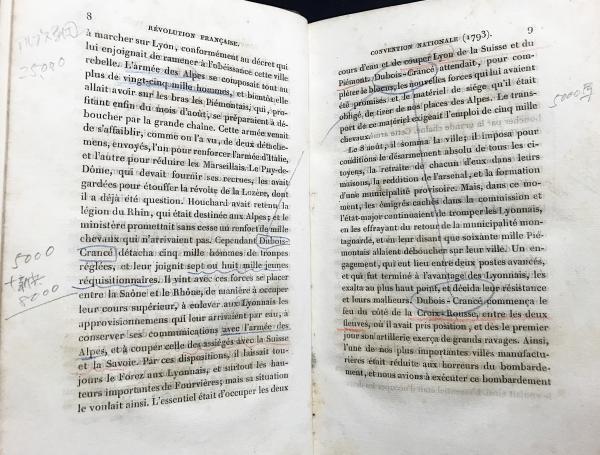 8
RÉVOLUTION FRANÇAISE.
à marcher sur Lyon, conformément au décret qui
lui enjoignait de ramener à l'obéissance cette ville
rebelle. L'armée des Alpes se composait tout au
plus de vingt-cinq mille hommes, et bientôt elle
allait avoir sur les bras les Piémontais, qui, pro-
fitant enfin du mois d'août, se préparaient à dé-
boucher par la grande chaîne. Cette armée venait
de s'affaiblir, comme on l'a vu, de deux détache-
mens, envoyés, l'un pour renforcer l'armée d'Italie,
et l'autre pour réduire les Marseillais. Le Puy-de-
Dôme, qui devait fournir ses recrues, les avait
gardées pour étouffer la révolte de la Lozère, dont
il a déjà été question. Houchard avait retenu la
légion du Rhin, qui était destinée aux Alpes; et le
ministère promettait sans cesse un renfort de mille
chevaux qui n'arrivaient pas. Cependant Dubois-
Crancé détacha cinq mille hommes de troupes
réglées, et leur joignit sept ou huit mille jeunes
réquisitionnaires. Il vint avec ces forces se placer
entre la Saône et le Rhône, de manière à occuper
leur cours supérieur, à enlever aux Lyonnais les
approvisionnemens qui leur arrivaient par eau, à
conserver ses communications avec l'armée des
Alpes, et à couper celle des assiégés avec la Suisse
et la Savoie. Par ces dispositions, il laissait tou-
jours le Forez aux Lyonnais, et surtout les hau-
teurs importantes de Fourvières; mais sa situation
le voulait ainsi. L'essentiel était d'occuper les deux
25000
5000
8000
CONVENTION NATIONALE (1793).
9
cours d'eau et de couper Lyon de la Suisse et du
Piémont. Dubois-Crancé attendait, pour com-
pléter le blocus, les nouvelles forces qui lui avaient
été promises et le matériel de siége qu'il était
obligé de tirer de nos places des Alpes. Le trans-
port de ce matériel exigeait l'emploi de cinq mille
chevaux.
Le 8 août, il somma la ville; il imposa pour
conditions le désarmement absolu de tous les ci-
toyens, la retraite de chacun d'eux dans leurs
maisons, la reddition de l'arsenal, et la formation
d'une municipalité provisoire. Mais, dans ce mo-
ment, les émigrés cachés dans la commission et
l'état-major continuaient de tromper les Lyonnais,
en les effrayant du retour de la municipalité mon-
tagnarde, et en leur disant que soixante mille Pié-
montais allaient déboucher sur leur ville. Un en-
gagement, qui eut lieu entre deux postes avancés,
et qui fut terminé à l'avantage des Lyonnais, les
exalta au plus haut point, et décida leur résistance
et leurs malheurs. Dubois-Crancé commença le
feu du côté de la Croix-Rousse, entre les deux
fleuves, où il avait pris position, et dès le premier
jour son artillerie exerça de grands ravages. Ainsi,
l'une de nos plus importantes villes manufactu-
rières était réduite aux horreurs du bombarde-
ment, et nous avions à exécuter ce bombardement
5000